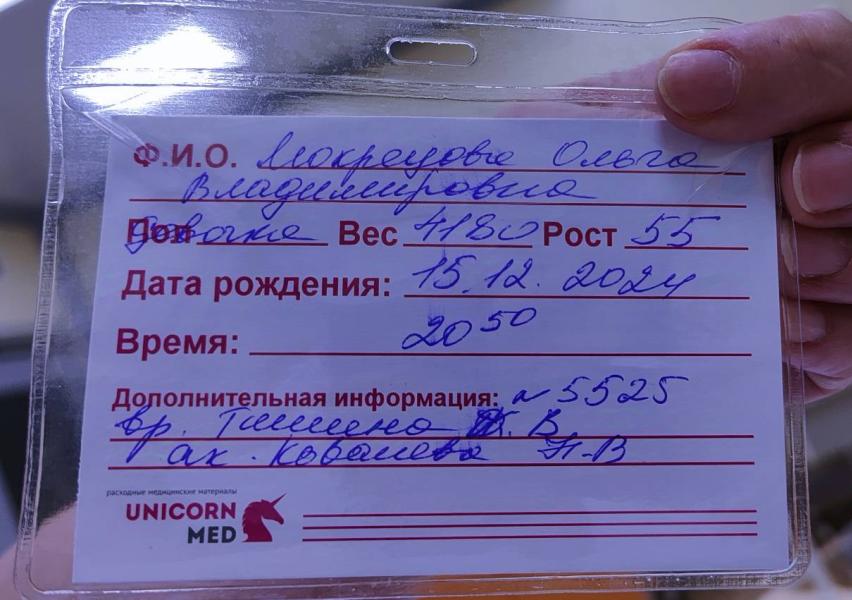 Ф.И.О. Мокрецова Ольга
Владимировна
Пол девочка Вес 4180 Рост 55
Дата рождения: 15.12.2024
Время: 20 50
Дополнительная информация: № 5525
вр. Тишина В.
ак. Ковалева Н.В
расходные медицинские материалы
UNICORN
MED